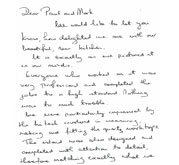 Dear Paul and Mark
we would like to let you
know, how delighted we are with our
beautiful, new kitchen.
It is exactly as we pictured it
in our minds.
Everyone who worked on it was
very professional and completed the
jobs to a high standard. Nothing
was to much trouble.
We were particularly impressed by
the involved in
making and fitting the quartz worktops
The island was designed and
completed with attention to detail,
therefore matching exactly what we